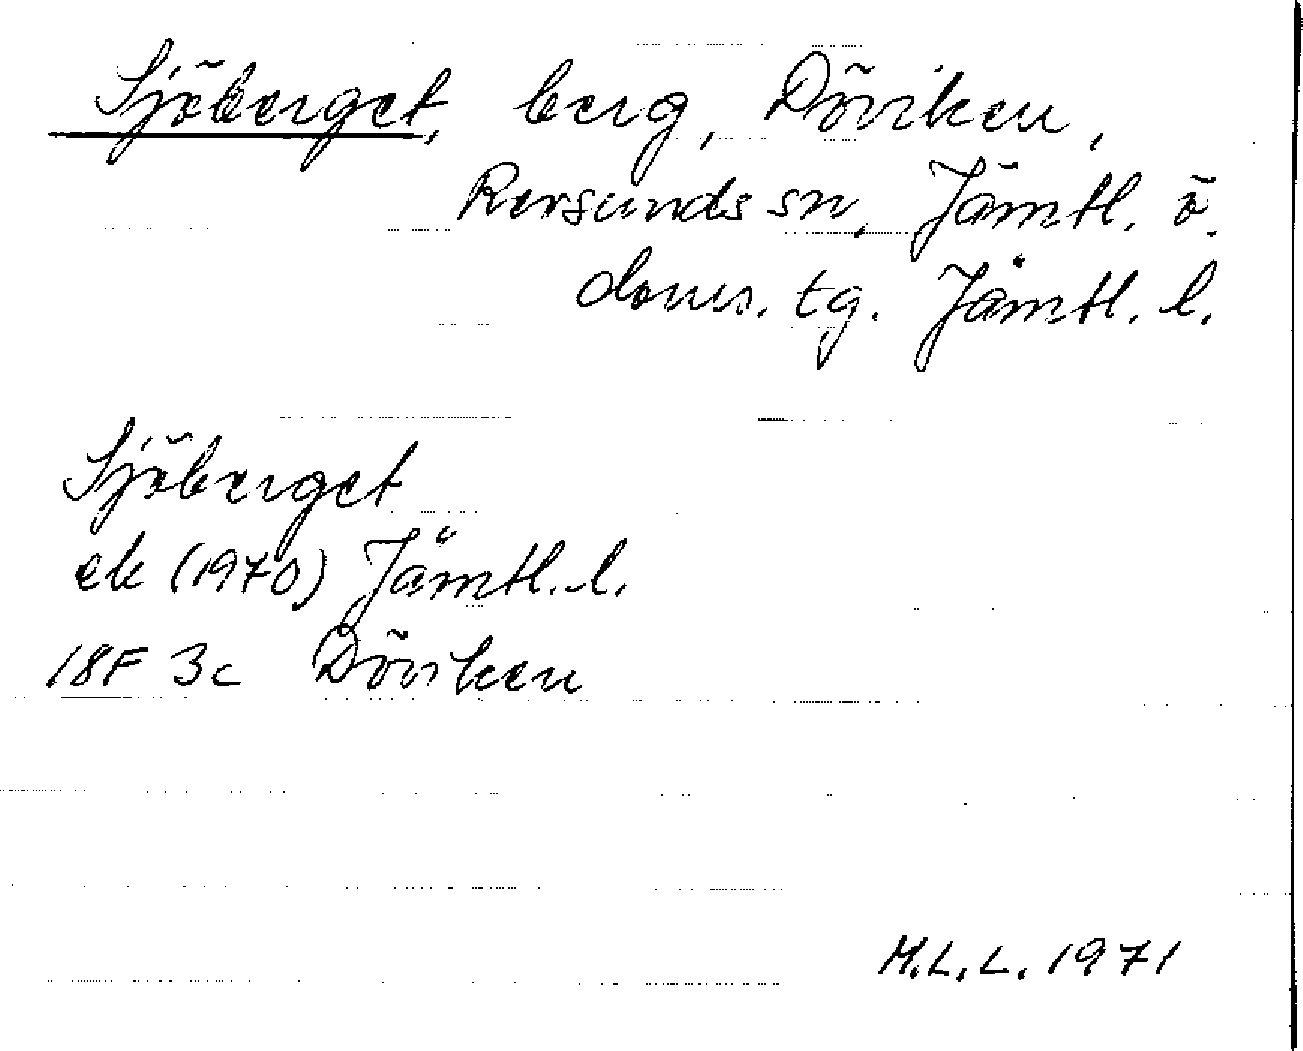 Sjöberget, berg, Döviken,
Revsunds sn, Jämtl. ö.
doms. tg. Jämtl. l.
Sjöberget
ek (1970) Jämtl. l.
18F 3c Döviken
M.L.L. 1971